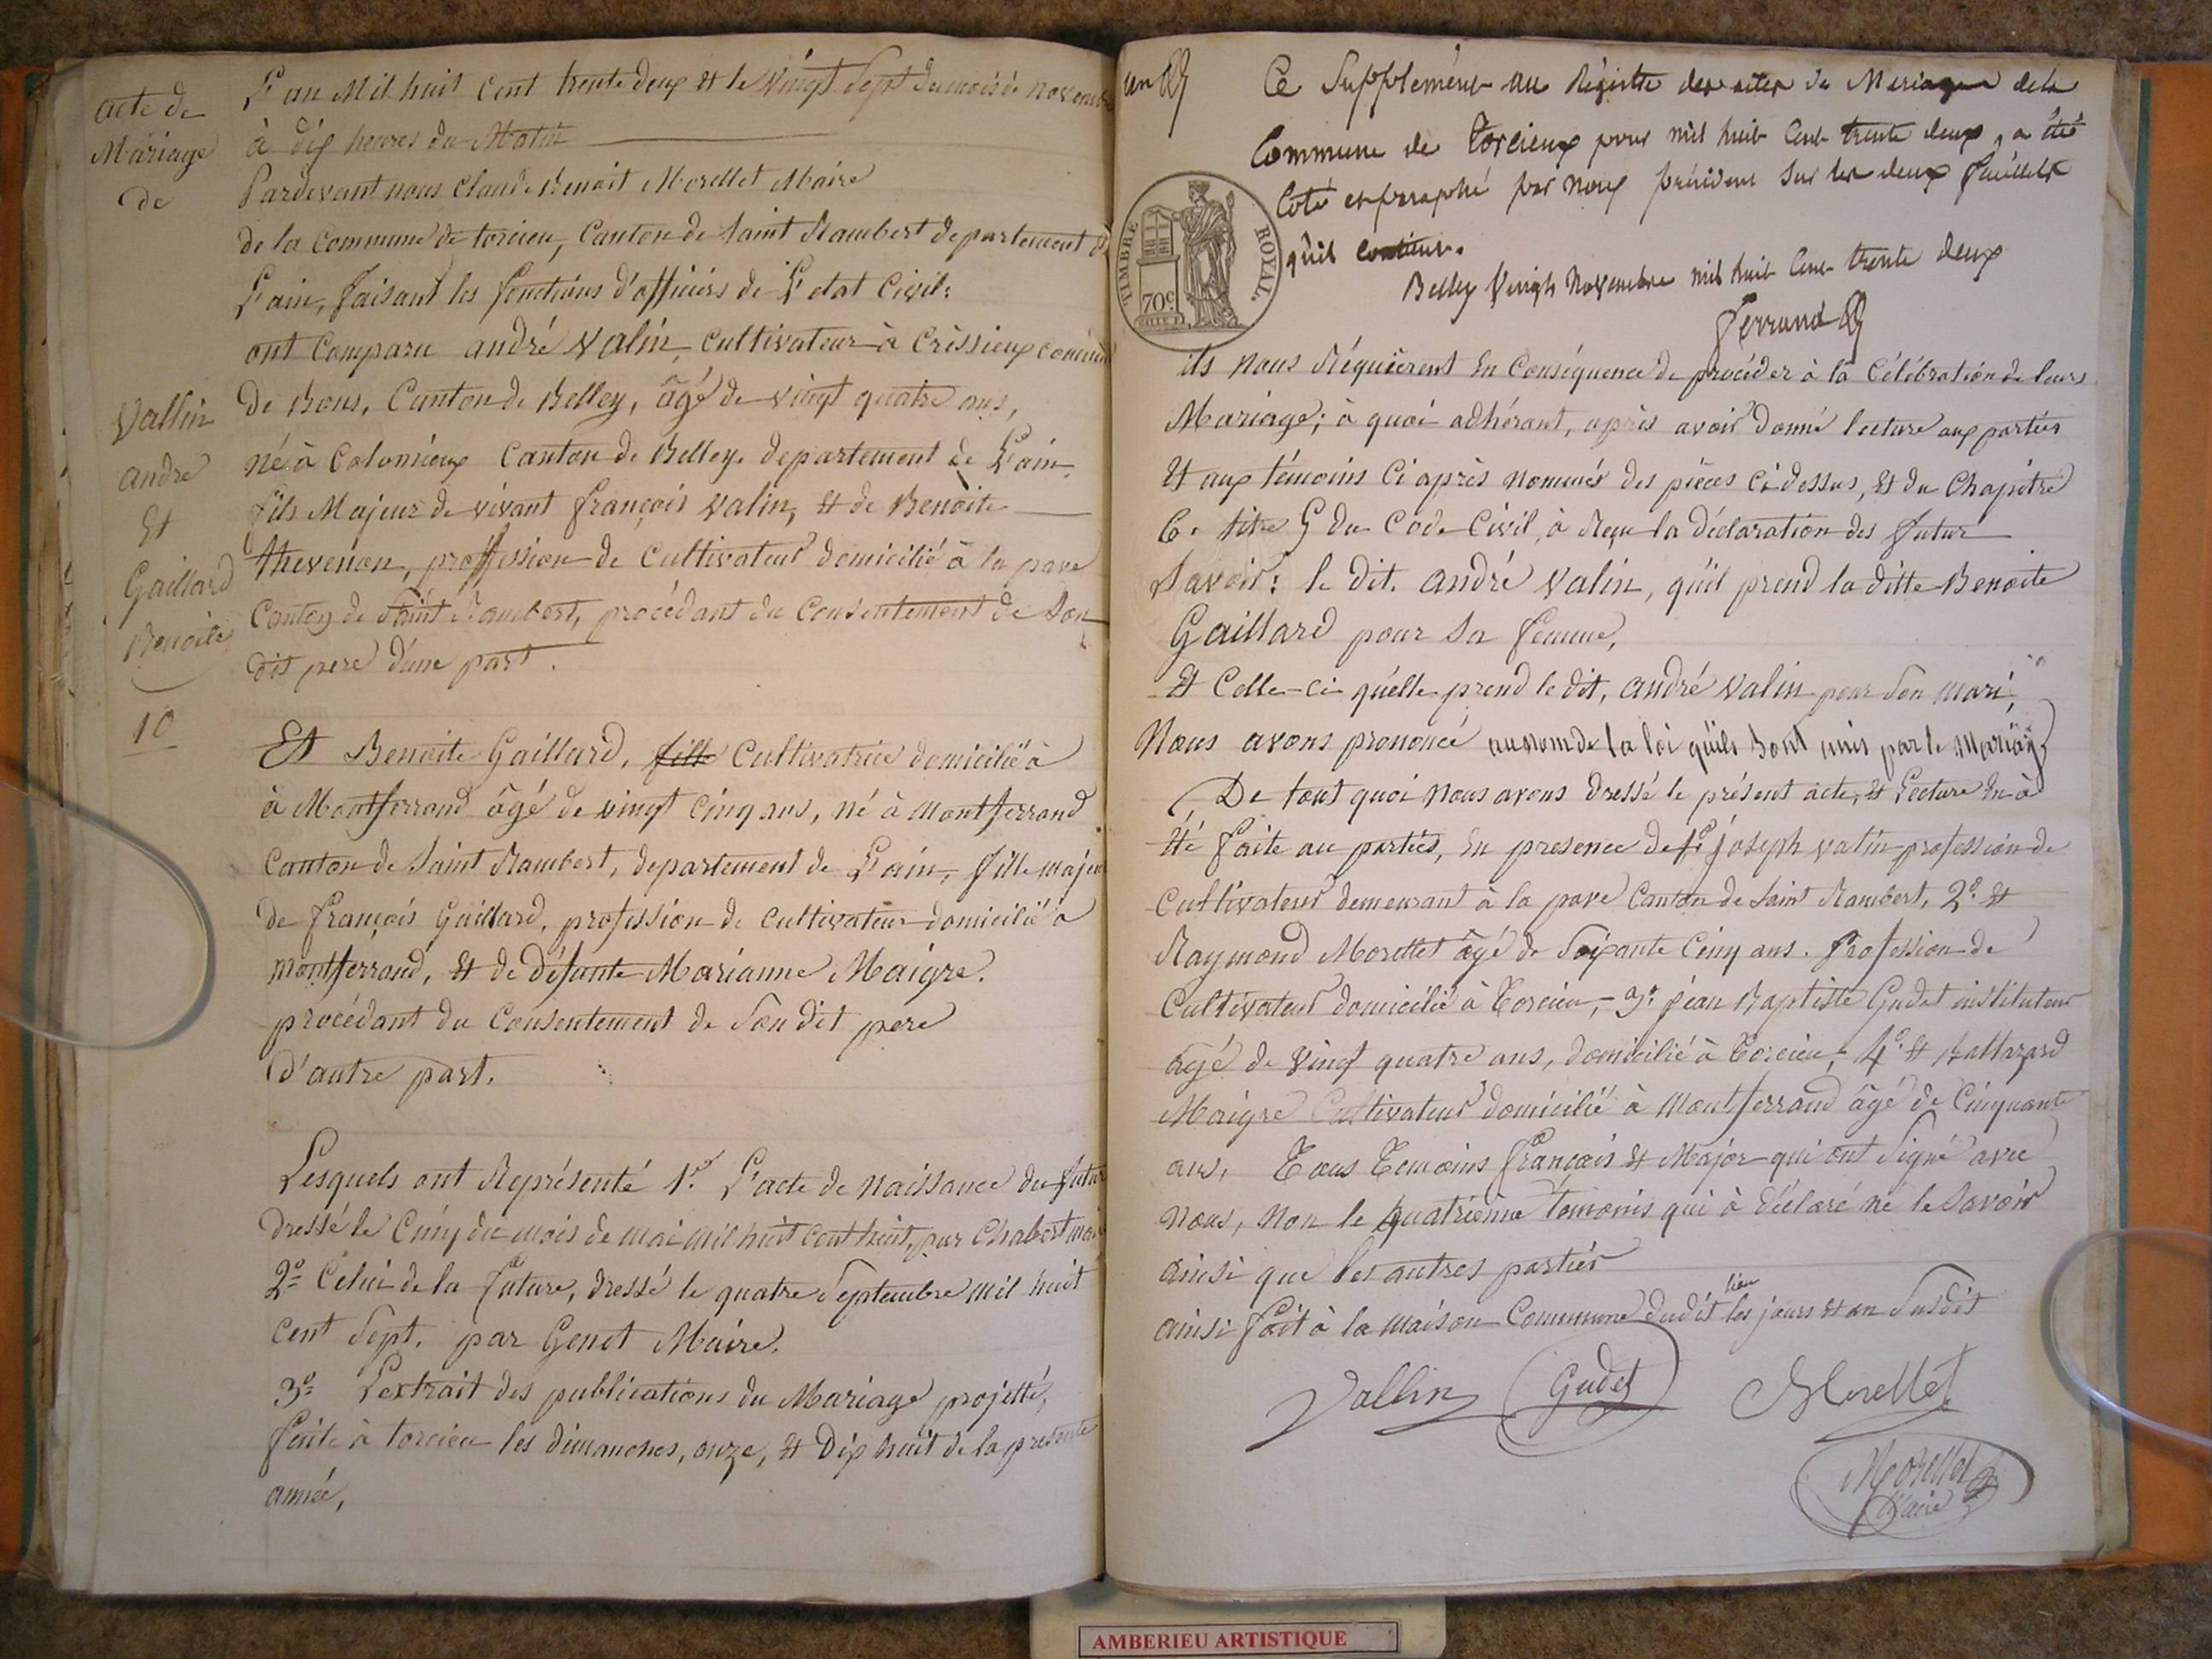 acte de
Mariage
de
Vallin
andre
Et
Gaillard
Benoite
10
L'an Mil huit Cent trente deux et le vingt Sept du mois de novembre
à dix heures du Matin
Pardevant nous Claude Benoit Morellet Maire
de la Commune de torcieu, Canton de Saint Rambert departement de
L'ain, faisant les fonctions d'officiers de L'etat Civil:
ont Comparu andré Valin, cultivateur à Crèssieux commune
de Bons, Canton de Belley, âgé de vingt quatre ans,
né à Colomieux Canton de Belley departement de L'ain,
fils Majeur de vivant françois Valin, et de Benoite
thevenon, proffession de Cultivateur domicilié à la pave
Canton de Saint Rambert, procédant du Consentement de Son
dit pere d'une part.
Et Benoite Gaillard, fille Cultivatrice domiciliée à
à Montferrand âgé de vingt Cinq ans, né à Montferrand
Canton de Saint Rambert, departement de L'ain, fille majeur
de françois Gaillard, profession de Cultivateur domicilié à
montferrand, et de défante Marianne Maigre.
procédant du Consentement de Son dit pere
d'autre part.
Lesquels ont Représenté 1.º L'acte de Naissance du futur
dressé le Cinq du mois de mai mil huit cent huit, par Chabert maire
2º Celui de la future, dressé le quatre Septembre Mil huit
cent Sept. par Genet Maire.
3º L'extrait des publications du Mariage projetté,
faite à torcieu les dimanches, onze, et Dix huit de la presente
année,
un
Ce Supplément au Régistre des actes de Mariage de la
Commune de Torcieux pour mil huit Cent trente deux, a été
Coté et paraphé par Nous président sur les deux feuillets
qu'il contient.
Belley Vingt Novembre mil huit Cent trente deux
Ferrand
TIMBRE ROYAL.
70c
ils nous Réquièrent En Conséquence de procéder à la Célébration de leurs
Mariage; à quoi adhérant, après avoir donné lecture aux parties
Et aux témoins Ci après nommés des pièces Ci dessus, Et du Chapitre
6. titre 5 du Code Civil, à Reçu la déclaration des futur
Savoir: le dit. andré Valin, qu'il prend la ditte Benoite
Gaillard pour Sa femme,
Et Celle-ci qu'elle prend le dit, andré Valin pour Son mari,
Nous avons prononcé au nom de la loi qu'ils Sont unis par le Mariage
De tout quoi Nous avons dressé le présent acte, Et Lecture En à
été faite au parties, En presence de 1º joseph valin profession de
Cultivateur demeurant à la pave Canton de Saint Rambert, 2º. Et
Raymond Morettet âgé de Soixante Cinq ans. Profession de
Cultivateur domicilié à Torcieu, 3º. jean Baptiste Gudet instituteur
âgé de Vingt quatre ans, domicilié à Torcieu, 4º. Et Baltazard
Maigre Cultivateur domicilié à Montferrand âgé de Cinquante
ans, Tous Temoins français Et Major qui ont Signé avec
nous, Non le quatrième témoins qui à déclaré ne le Savoir
ainsi que les autres parties
lieu
ainsi fait à la maison Commune dudit les jours Et an Susdit
Vallin Gudet Morellet
Morellet
Maire
AMBERIEU ARTISTIQUE